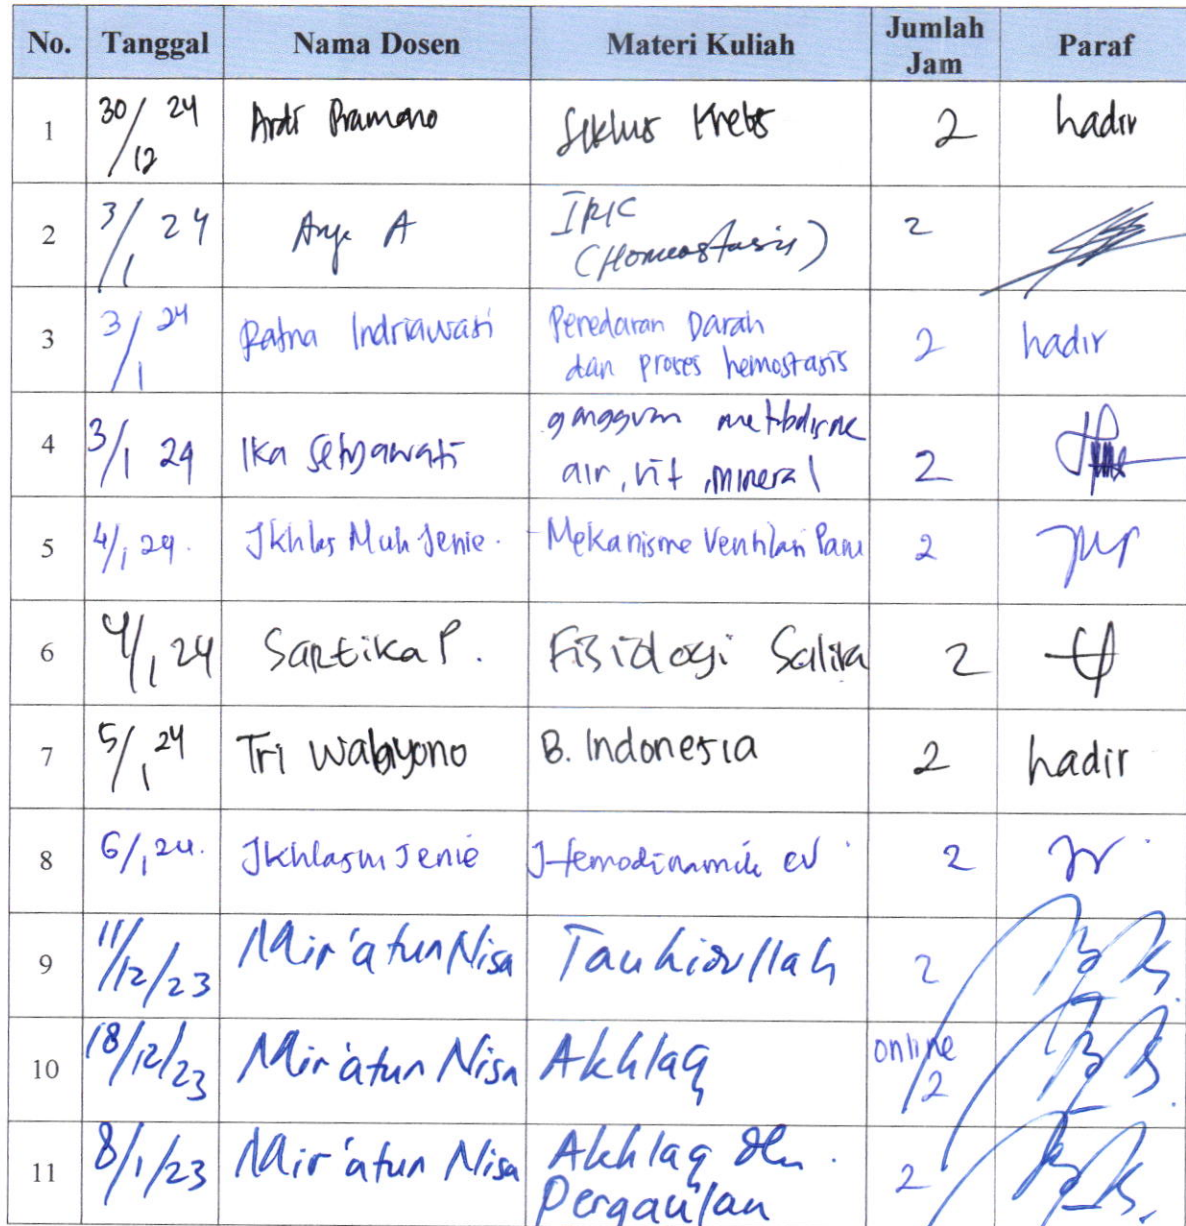 No. Tanggal Nama Dosen Materi Kuliah Jumlah Jam Paraf
1 30/12 24 Ardi Pramono Siklus Krebs 2 hadir
2 3/1 24 A IRIC (Homeostasis) 2
3 3/1 24 Ratna Indriawati Peredaran Darah dan proses hemostasis 2 hadir
4 3/1 24 Ika Setyawati gangguan metabolisme air, vit, mineral 2
5 4/1 24. Ikhlas Muh Jenie. Mekanisme Ventilasi Paru 2
6 4/1 24 Sartika P. Fisiologi Saliva 2
7 5/1 24 Tri Wahyono B. Indonesia 2 hadir
8 6/1 24. Ikhlas M Jenie Hemodinamik CV 2
9 11/12/23 Mir'atun Nisa Tauhidullah 2
10 18/12/23 Mir'atun Nisa Akhlaq online/2
11 8/1/23 Mir'atun Nisa Akhlaq Pergaulan 2